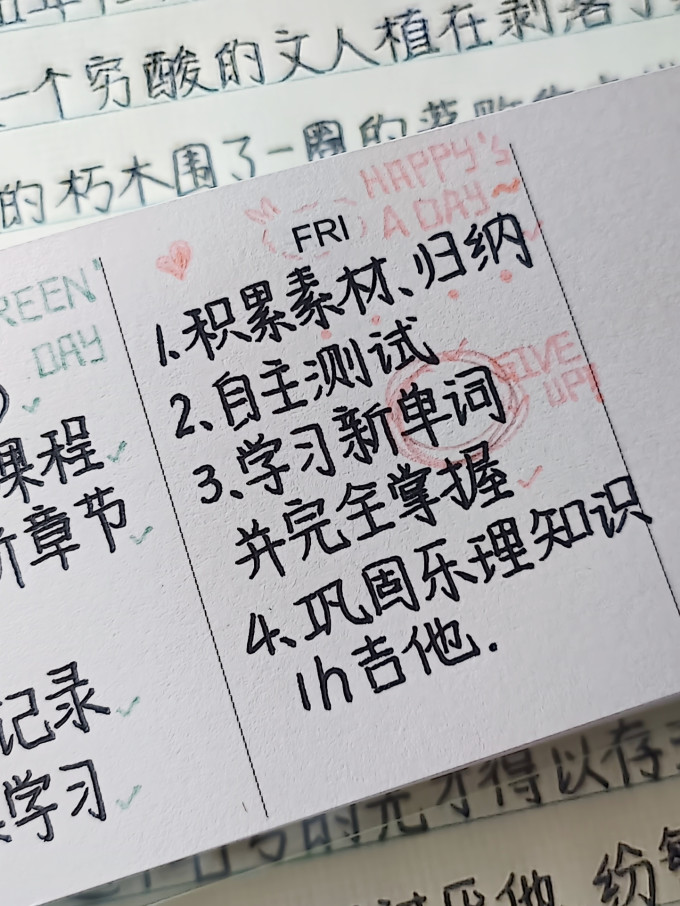 一个穷酸的文人植在剥落了
的朽木围了一圈的
HAPPY's
A DAY~
FRI
REEN'
DAY
1.积累素材、归纳
2、自主测试
GIVE
UP!
3、学习新单词
并完全掌握
4、巩固乐理知识
1h吉他.
课程
章节
记录
学习
得以存
他 纷